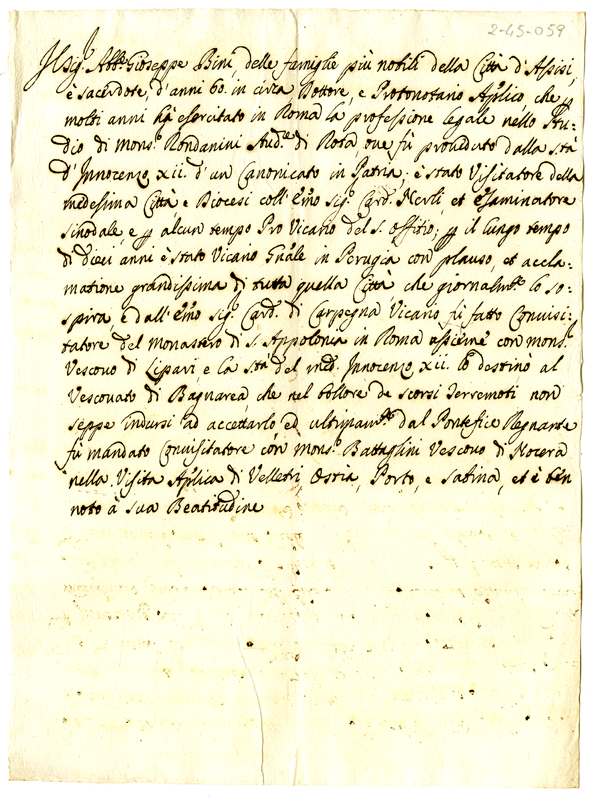 2-45-059
Il Sig.r Abb.e Giuseppe Bini, delle famiglie più nobili della Città d'Assisi,
è sacerdote, d'anni 60. in circa Dottore, e Protonotario Ap.lico, che p
molti anni hà esercitato in Roma la professione legale nello Stu-
dio di Mons.r Rondanini Aud.re di Rota oue fù proueduto dalla S.tà
d'Innocenzo XII. d'un Canonicato in Patria: è stato Visitatore della
medesima Città e Diocesi coll'Em̃o Sig.r Card. Nerli, et Esaminatore
sinodale e p alcun tempo Pro Vicario del S. Offitio; p il lungo tempo
di dieci anni è stato Vicario Gñale in Perugia con plauso, et accla-
matione grandissima di tutta quella Città che giornalm.te lo so-
spira e dall'Em̃o Sig.r Card. di Carpegna Vicario fù fatto Conuisi-
tatore del Monastero di S. Appolonia in Roma assieme con Mons.r
Vescouo di Lipari, e la S.tà del med. Innocenzo XII. lo destinò al
Vescouato di Bagnarea, che nel bollore de scorsi Terremoti non
seppe indursi ad accettarlo ed ultimam.te dal Pontefice Regnante
fù mandato Conuisitatore con Mons.r Battaglini Vescouo di Nocera
nella Visita Ap̃lica di Velletri, Ostia, Porto, e Sabina, et è ben
noto à Sua Beatitudine